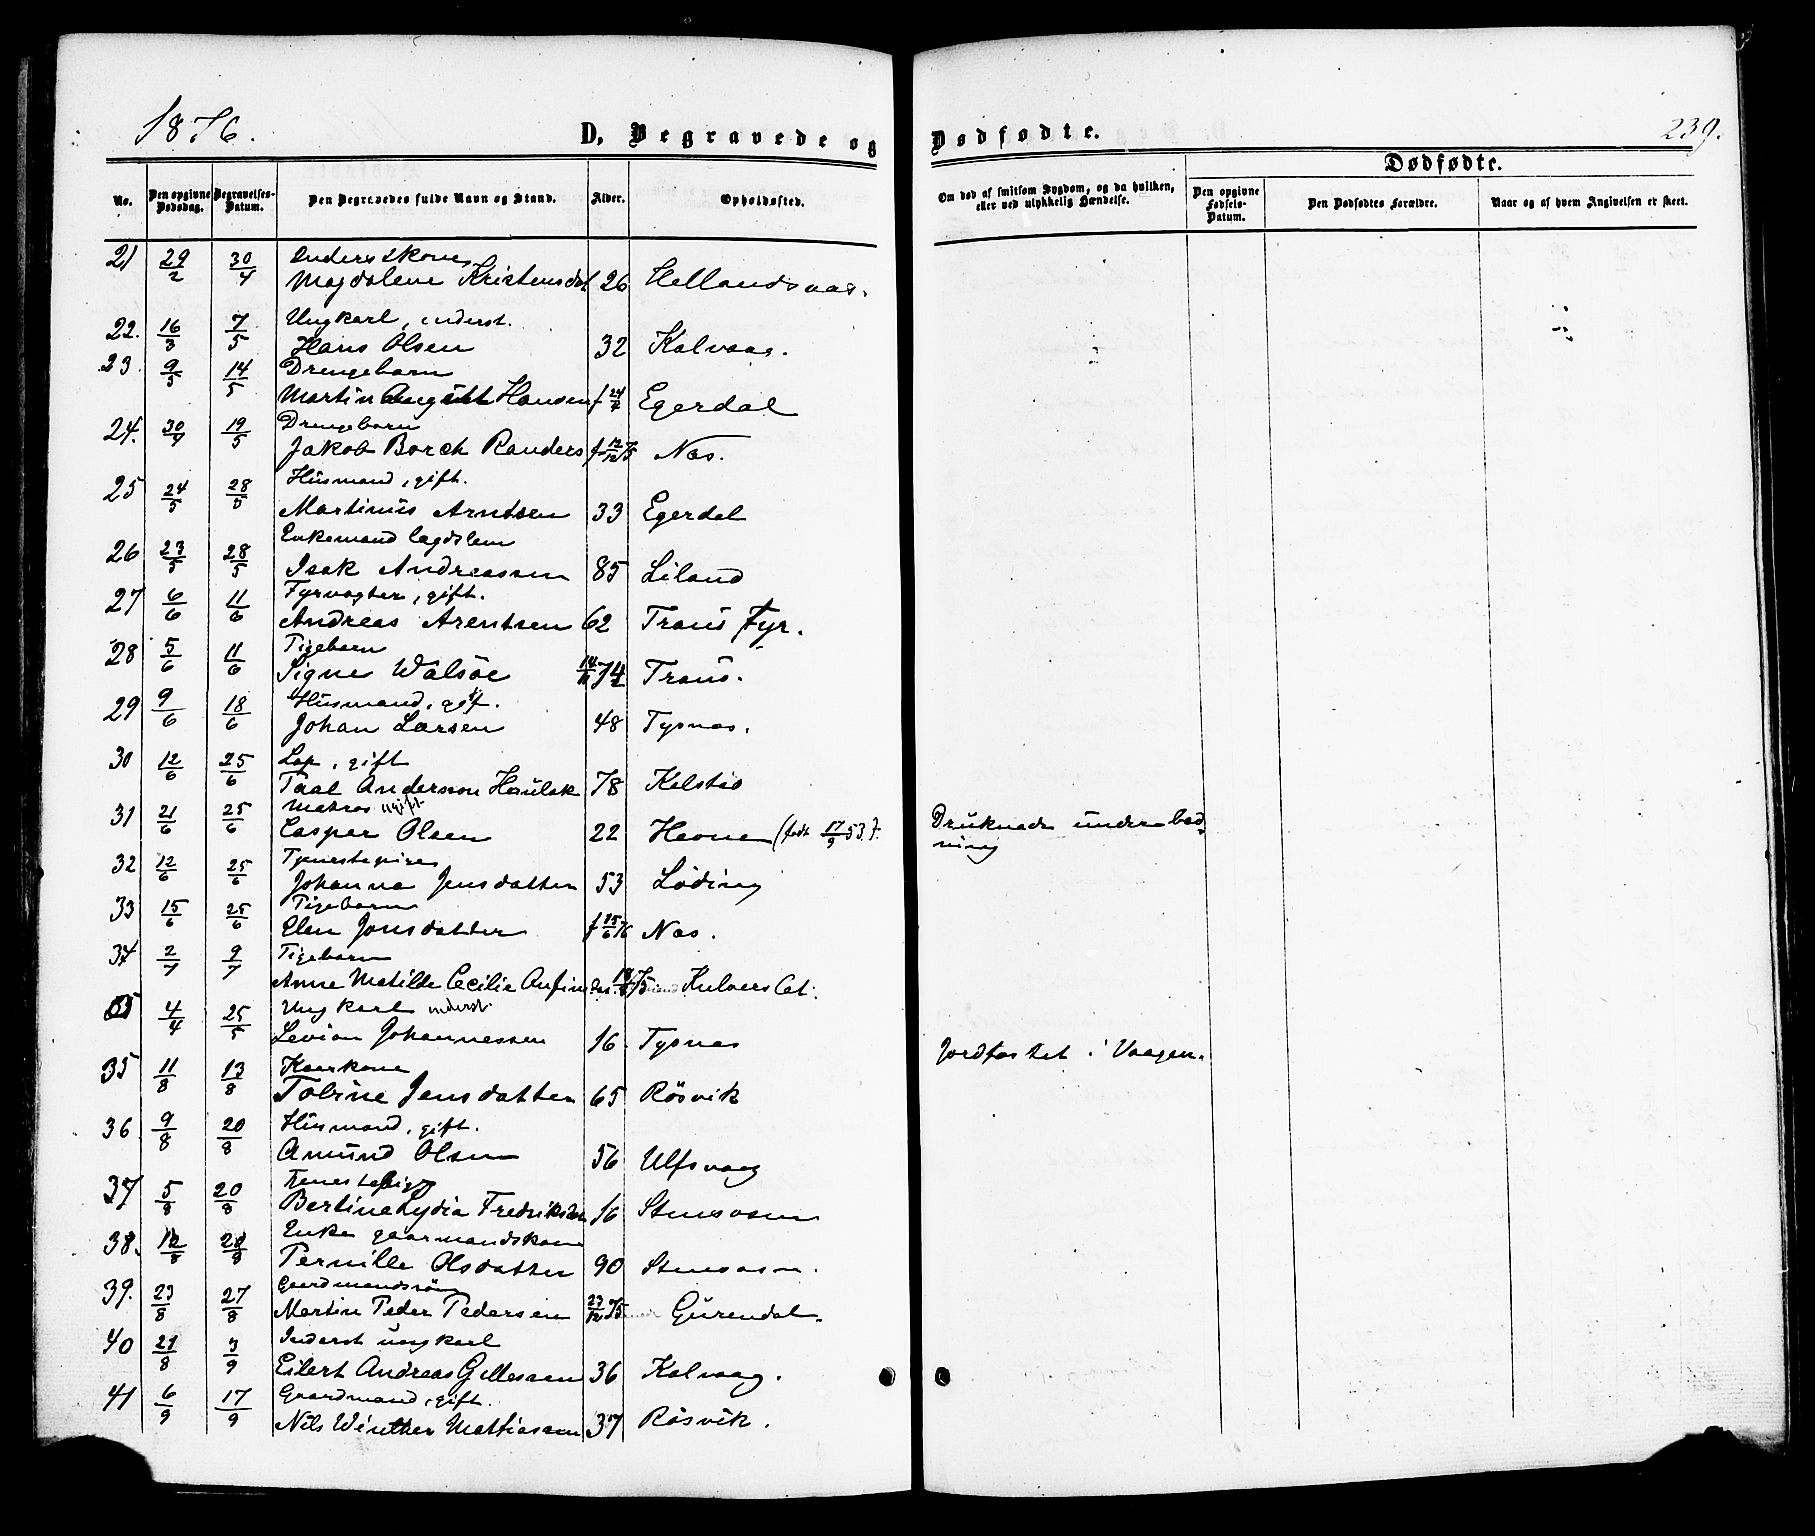 1876.
D. Begravede og
Dødfødte.
239.
Dødfødte.
No.
Den opgivne Dødsdag.
Begravelses-Datum.
Den Begravedes fulde Navn og Stand.
Alder.
Opholdssted.
Om død af smitsom Sygdom, og da hvilken, eller ved ulykkelig Hændelse.
Den opgivne Fødsels-Datum.
Den Dødfødtes Forældre.
Naar og af hvem Angivelsen er skeet.
Inderstkone
21 29/2 30/4 Magdalene Kristensdat 26 Hellandsvaag.
Ungkarl, inderst.
22. 16/3 7/5 Hans Olsen 32 Kalvaag.
Drengebarn
23. 9/5 14/5 Martin August Hansen f 24/4 Egerdal
Drengebarn
24. 30/4 19/5 Jakob Borch Randers f 12/12 75 Næs.
Husmand, gift.
25 24/5 28/5 Martinus Arntsen 33 Egerdal
Enkemand lægdslem
26 23/5 28/5 Isak Andreassen 85 Liland
Fyrvogter, gift.
27 6/6 11/6 Andreas Arentsen 62 Tranö Fyr.
Pigebarn
28 5/6 11/6 Signe Walsöe 74 Tranö.
Husmand, gif.
29 9/6 18/6 Johan Larsen 48 Tysnæs.
Lap, gift
30 12/6 25/6 Paal Anderssen 78
Matros ugift
31 21/6 25/6 Casper Olsen 22 (født 17/9 53). Druknede under bad-
ning
Tjenestepige
32 12/6 25/6 Johanna Jensdatter 53 Löding
Pigebarn
33 15/6 25/6 Elen Jonsdatter f 15/6 76 Næs.
Pigebarn
34 2/7 9/7 Anne Matilde Cecilie
Ungkarl inderst
4/4 25/5 Johannessen 16. Tysnæs Jordfæstet i Vaagen.
Kaarkone
35 11/8 13/8 Tobine Jensdatter 65 Rösvik
Husmand, gift.
36 9/8 20/8 Amund Olsen 56 Ulfsvaag
Tjenestepige
37 5/8 20/8 Bertine Lydia Fredriksdat 16
Enke gaarmandskone
38. 12/8 Pernille Olsdatter 90
Gaardmandssön
39. 23/8 27/8 Martin Peder Pedersen 23/12 75 Gurendal.
Inderst ungkarl
40 21/8 3/9 Eilert Andreas 36 Kalvaag.
Gaardmand, gift.
41 6/9 17/9 Nils Winther Mathiassen 37 Rösvik.